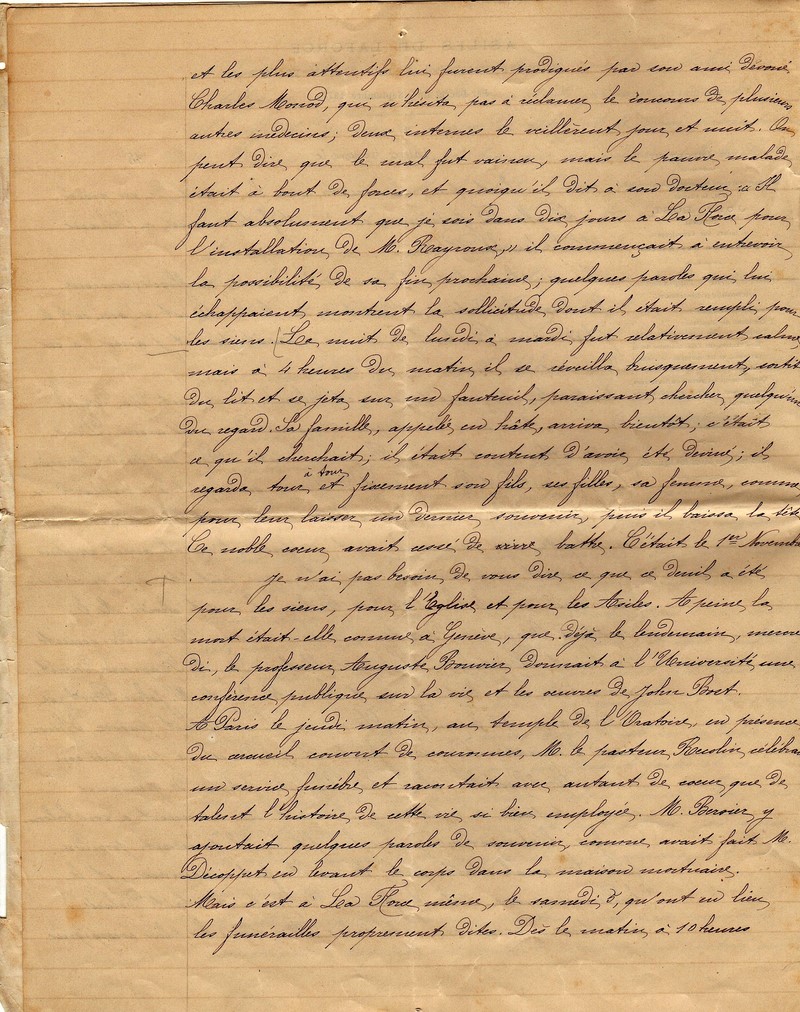 et les plus attentifs lui furent prodigués par son ami dévoué
Charles Monod, qui n'hésita pas à réclamer le concours de plusieurs
autres médecins; deux internes le veillèrent jour et nuit. On
peut dire que le mal fut vaincu, mais le pauvre malade
était à bout de forces, et quoiqu'il dit à son docteur: « Il
faut absolument que je sois dans dix jours à La Force pour
l'installation de M. Rayroux, » il commençait à entrevoir
la possibilité de sa fin prochaine; quelques paroles qui lui
échappaient montrent la sollicitude dont il était rempli pour
les siens. La nuit de lundi à mardi fut relativement calme
mais à 4 heures du matin il se réveilla brusquement, sortit
du lit et se jeta sur un fauteuil, paraissant chercher quelqu'un
du regard. Sa famille, appelée en hâte, arriva bientôt; c'était
ce qu'il cherchait; il était content d'avoir été deviné; il
regarda tour à tour et fixement son fils, ses filles, sa femme, comme
pour leur laisser un dernier souvenir, puis il baissa la tête
Ce noble cœur avait cessé de vivre battre. C'était le 1er Novembre
Je n'ai pas besoin de vous dire ce que ce deuil a été
pour les siens, pour l'Eglise et pour les Asiles. A peine la
mort était-elle connue à Genève, que déjà le lendemain, mercre
di, le professeur Auguste Bouvier donnait à l'Université une
conférence publique sur la vie et les œuvres de John Bost.
A Paris le jeudi matin, au temple de l'Oratoire, en présence
du cercueil couvert de couronnes, M. le pasteur Recolin célébrait
un service funèbre et racontait avec autant de cœur que de
talent l'histoire de cette vie si bien employée. M. Bersier y
ajoutait quelques paroles de souvenir, comme avait fait M.
Décoppet en levant le corps dans la maison mortuaire.
Mais c'est à La Force même, le samedi 5, qu'ont eu lieu
les funérailles proprement dites. Dès le matin à 10 heures